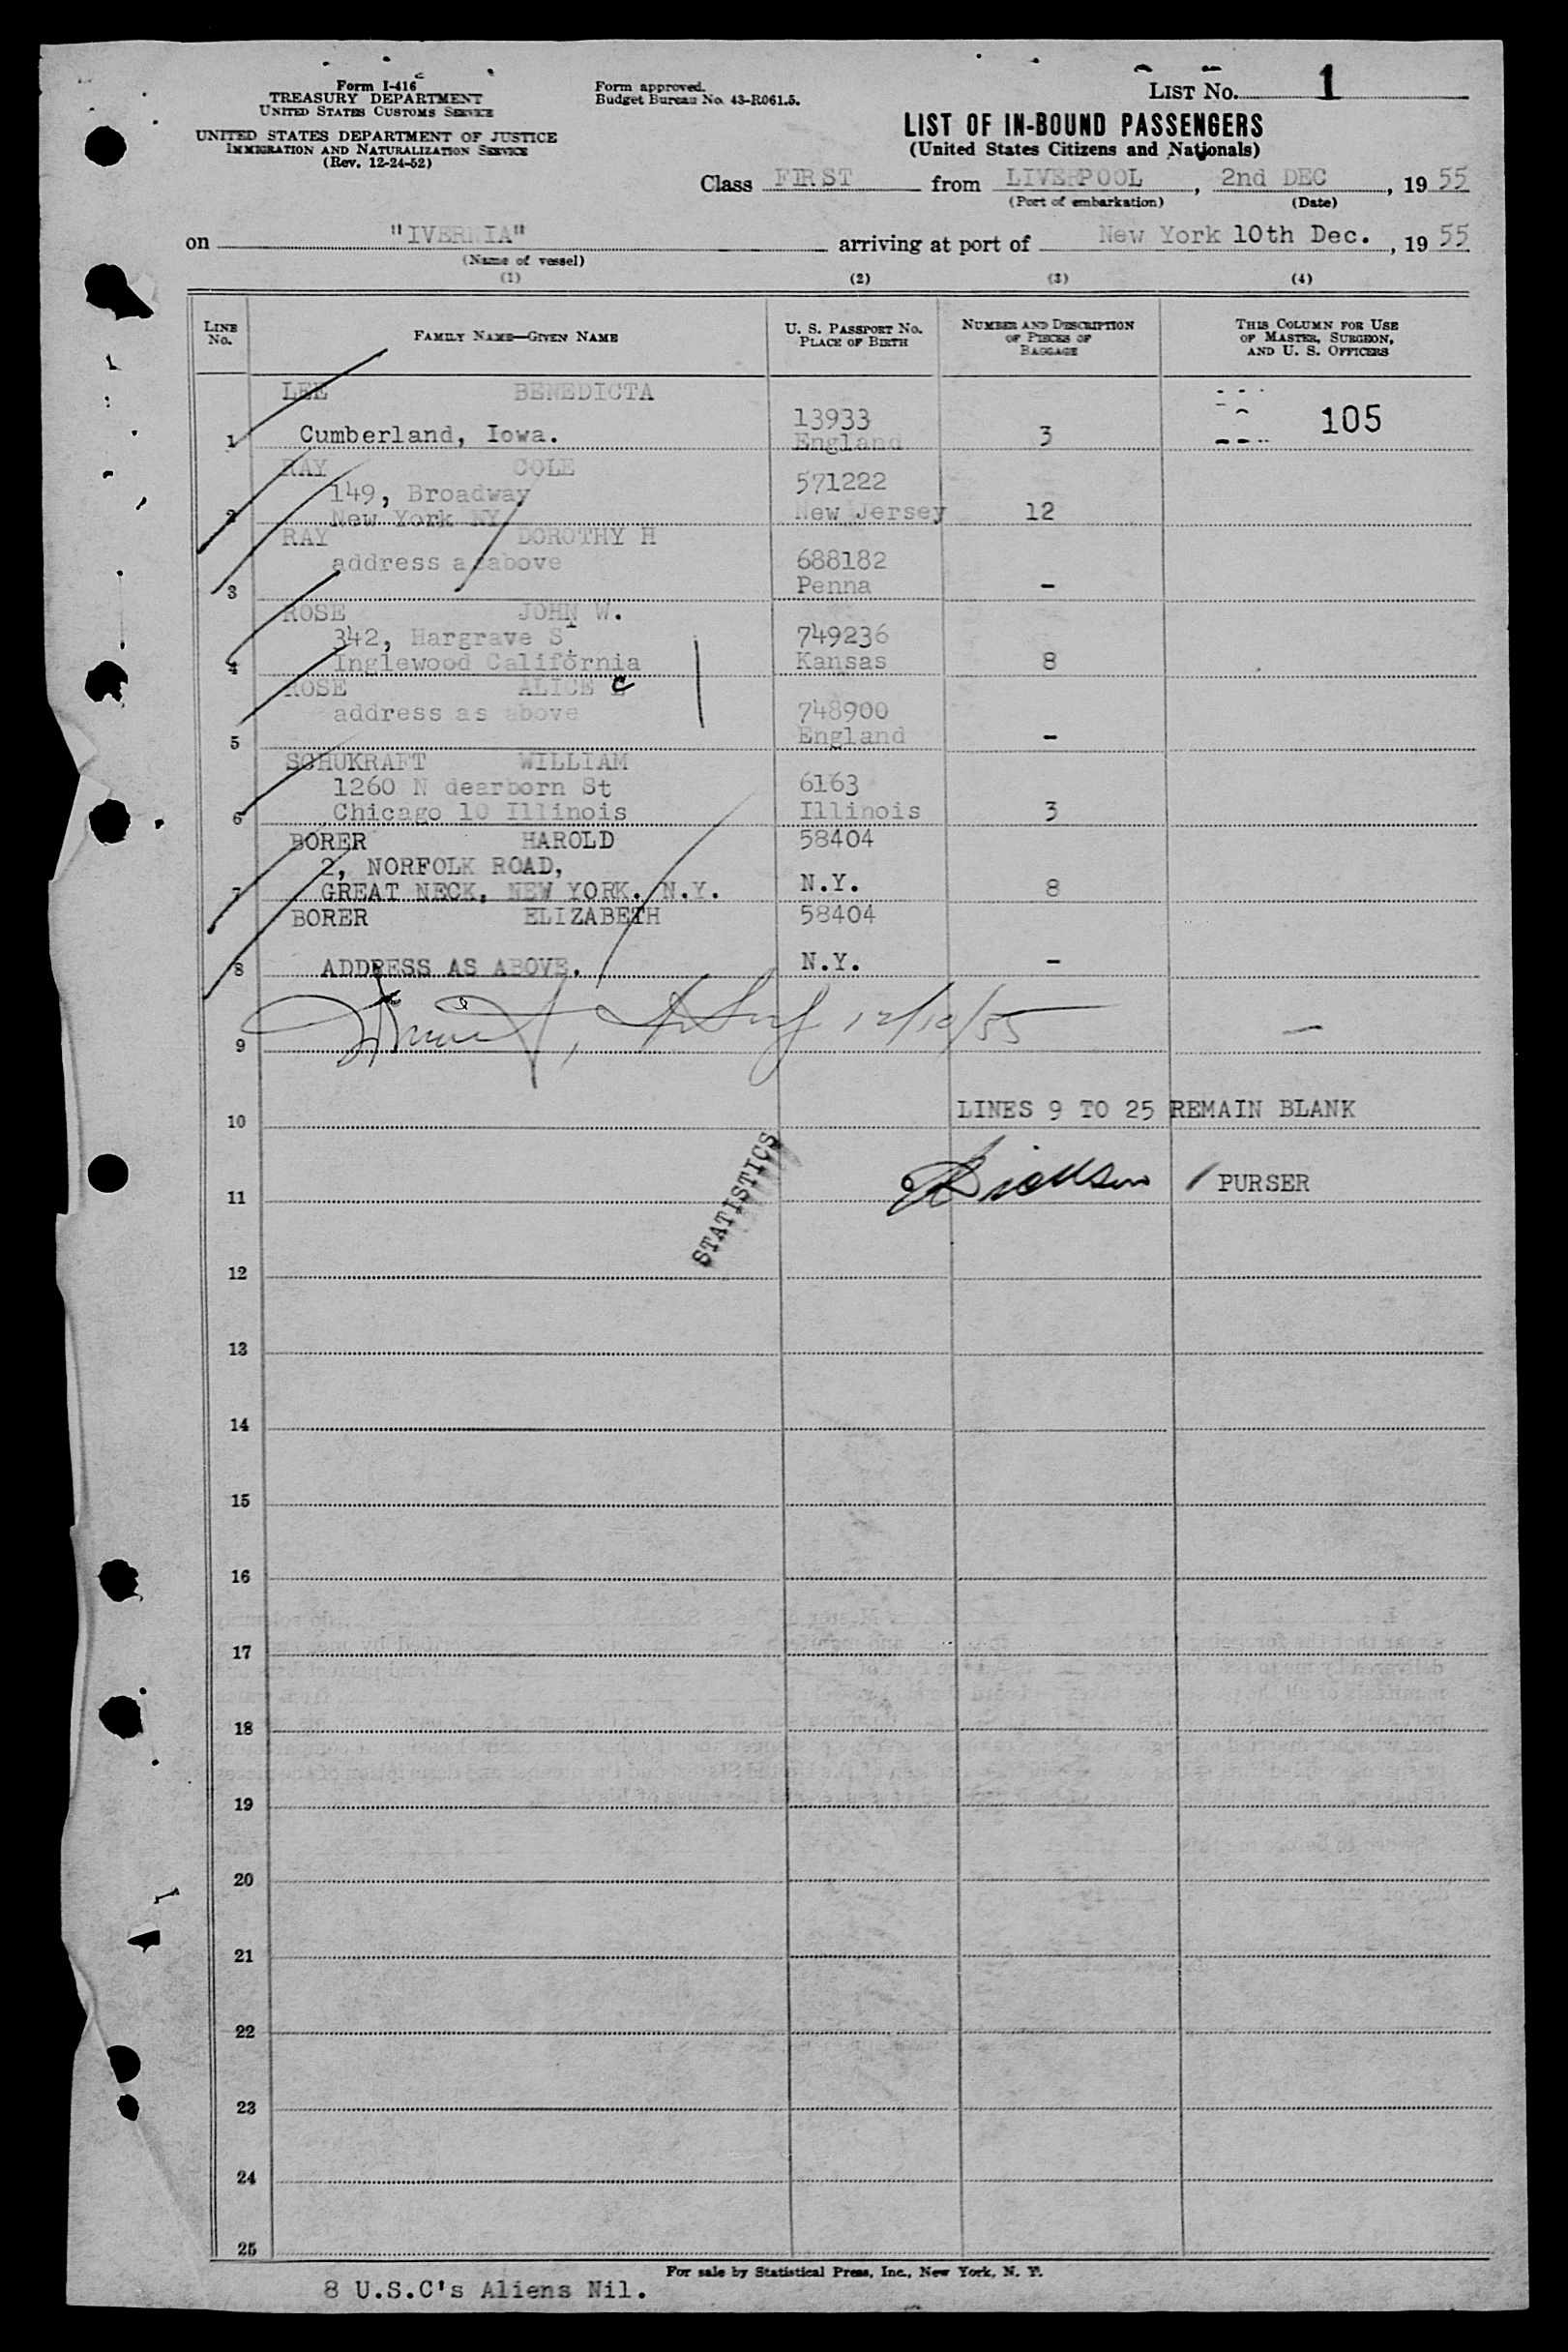 Form I-416
TREASURY DEPARTMENT
UNITED STATES CUSTOMS SERVICE
UNITED STATES DEPARTMENT OF JUSTICE
IMMIGRATION AND NATURALIZATION SERVICE
(Rev. 12-24-52)
Form approved.
Budget Bureau No. 43-R061.5.
LIST NO. 1
LIST OF IN-BOUND PASSENGERS
(United States Citizens and Nationals)
Class FIRST from LIVERPOOL, 2nd DEC, 19 55
(Port of embarkation) (Date)
on "IVERNIA" arriving at port of New York 10th Dec., 19 55
(Name of vessel)
(1) (2) (3) (4)
LINE NO. FAMILY NAME—GIVEN NAME U. S. PASSPORT NO. PLACE OF BIRTH NUMBER AND DESCRIPTION OF PIECES OF BAGGAGE THIS COLUMN FOR USE OF MASTER, SURGEON, AND U. S. OFFICERS
LEE BENEDICTA
13933 105
1 Cumberland, Iowa. England 3
RAY COLE
149, Broadway 571222
2 New York NY New Jersey 12
RAY DOROTHY H
address as above 688182
3 Penna -
ROSE JOHN W.
342, Hargrave St 749236
4 Inglewood California Kansas 8
ROSE ALICE C
address as above 748900
5 England -
SCHUKRAFT WILLIAM
1260 N dearborn St 6163
6 Chicago 10 Illinois Illinois 3
BORER HAROLD 58404
2, NORFOLK ROAD,
7 GREAT NECK, NEW YORK. N.Y. N.Y. 8
BORER ELIZABETH 58404
8 ADDRESS AS ABOVE. N.Y. -
12/10/55 —
9
LINES 9 TO 25 REMAIN BLANK
10
STATISTICS
Dickson / PURSER
11
12
13
14
15
16
17
18
19
20
21
22
23
24
25
For sale by Statistical Press, Inc., New York, N. Y.
8 U.S.C's Aliens Nil.